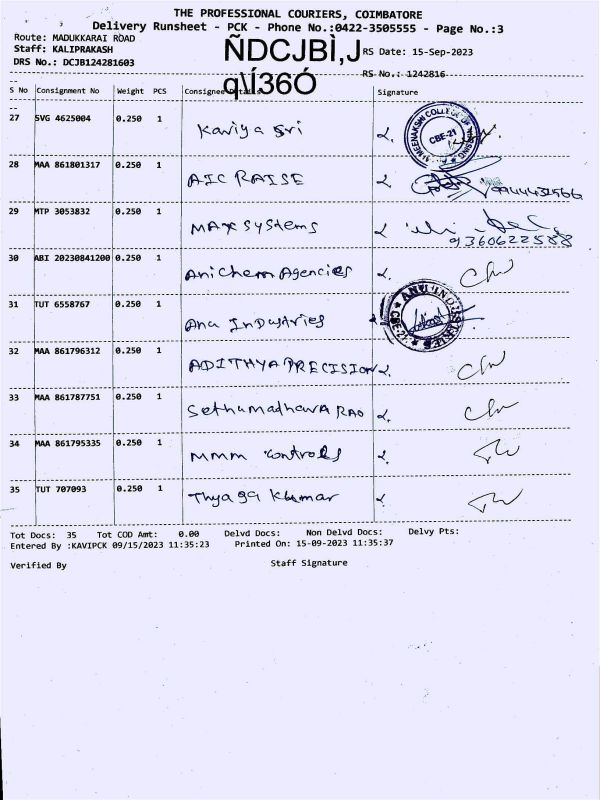 THE PROFESSIONAL COURIERS, COIMBATORE
Delivery Runsheet - PCK - Phone No.:0422-3505555 - Page No.:3
Route: MADUKKARAI ROAD
Staff: KALIPRAKASH ÑDCJBÌ,J RS Date: 15-Sep-2023
DRS No.: DCJB124281603
q\Í36Ó RS No.: 1242816
S No Consignment No Weight PCS Consignee Details Signature
27 SVG 4625004 0.250 1 Kaviya sri
CBE-21
28 MAA 861801317 0.250 1 AIC RAISE 9944432566
29 MTP 3053832 0.250 1 MAX Systems
9360622588
30 ABI 20230841200 0.250 1 Ani Chem Agencies
31 TUT 6558767 0.250 1 Anu Industries
ANU INDUSTRIES CBE-21
32 MAA 861796312 0.250 1 ADITHYA PRECISION
33 MAA 861787751 0.250 1 Sethumadhava RAO
34 MAA 861795335 0.250 1 MMM controls
35 TUT 707093 0.250 1 Thyaga Kumar
Tot Docs: 35 Tot COD Amt: 0.00 Delvd Docs: Non Delvd Docs: Delvy Pts:
Entered By :KAVIPCK 09/15/2023 11:35:23 Printed On: 15-09-2023 11:35:37
Verified By Staff Signature